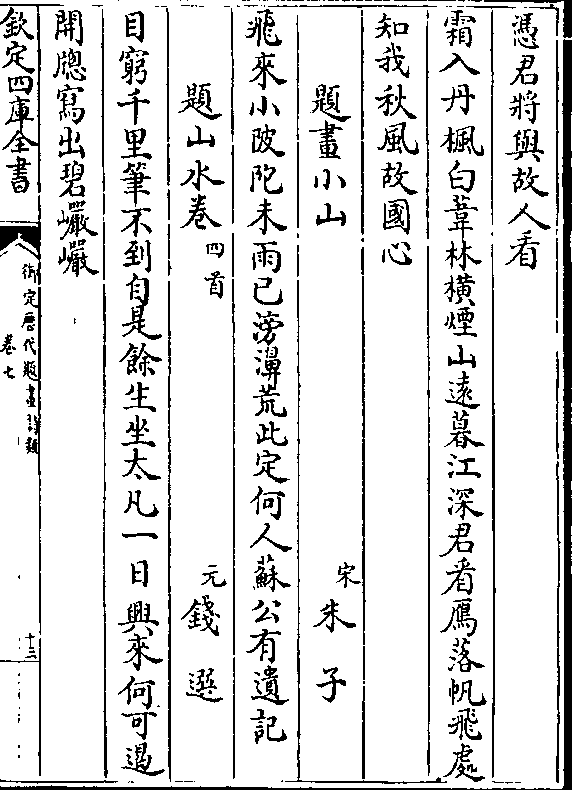 憑君將與故人看
霜入丹楓白葦林橫煙山遠暮江深君看鴈落帆飛處
知我秋風故國心
題畫小山 宋 朱子
飛來小陂陀未雨已滂濞荒此定何人蘇公有遺記
題山水卷 四首 元 錢選
目窮千里筆不到自是餘生坐太凡一日興來何可遏
開牕寫出碧巉巖
欽定四庫全書
御定歷代題畫詩類
卷七
十三